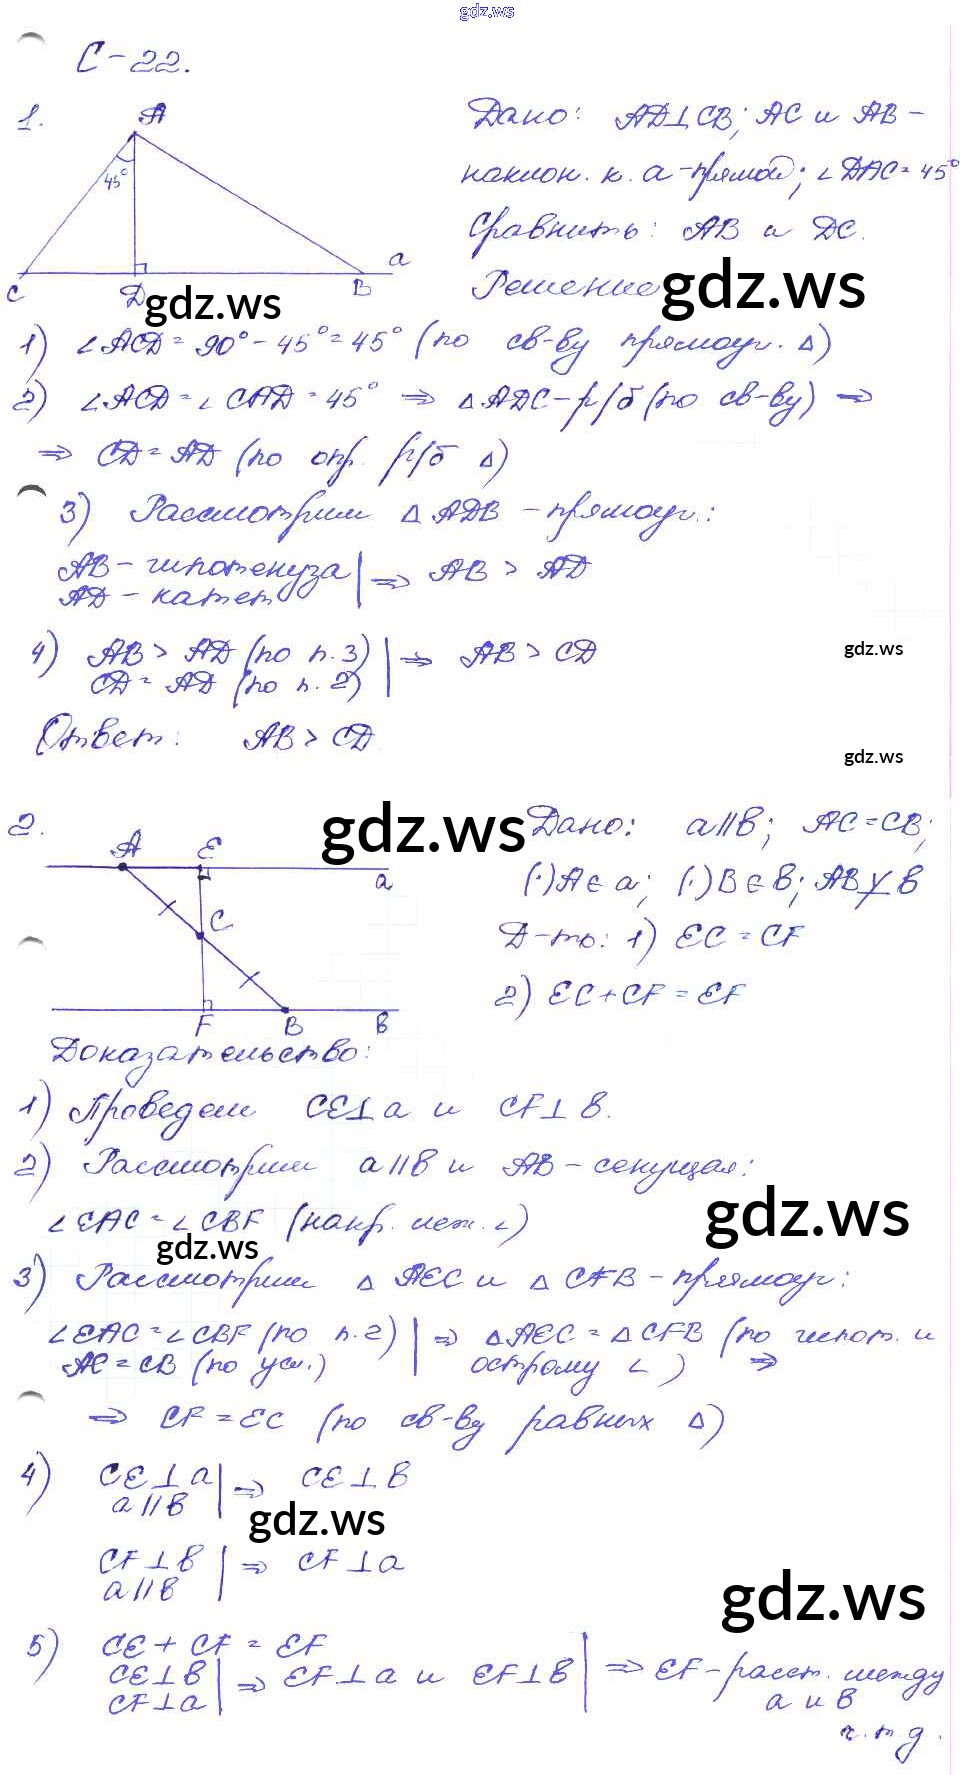 gdz.ws
С-22.
1.
A
45°
C
D
B
a
Дано: AD⊥CB; AC и AB-
наклон. к. a-прямой; ∠DAC=45°
Сравнить: AB и DC.
Решение
gdz.ws
gdz.ws
1) ∠ACD=90°-45°=45° (по св-ву прямоуг. △)
2) ∠ACD=∠CAD=45° ⇒ △ADC-р/б (по св-ву) ⇒
⇒ CD=AD (по опр. р/б △)
3) Рассмотрим △ADB-прямоуг.:
AB-гипотенуза | ⇒ AB > AD
AD-катет
4) AB > AD (по п.3) | ⇒ AB > CD
CD = AD (по п.2)
gdz.ws
Ответ: AB > CD
gdz.ws
2.
gdz.ws
A
E
a
C
F
B
в
Дано: a∥в; AC=CB;
(·)A∈a; (·)B∈в; AB⊥̸в
Д-ть: 1) EC=CF
2) EC+CF=EF
Доказательство:
1) Проведем CE⊥a и CF⊥в.
2) Рассмотрим a∥в и AB-секущая:
gdz.ws
∠EAC=∠CBF (накр. леж. ∠)
gdz.ws
3) Рассмотрим △AEC и △CFB-прямоуг:
∠EAC=∠CBF (по п.2) | ⇒ △AEC=△CFB (по гипот. и
AC=CB (по усл.) острому ∠) ⇒
⇒ CF=EC (по св-ву равных △)
4) CE⊥a | ⇒ CE⊥в
a∥в
gdz.ws
CF⊥в | ⇒ CF⊥a
a∥в
gdz.ws
5) CE+CF=EF
CE⊥в | ⇒ EF⊥a и EF⊥в | ⇒ EF-расст. между
CF⊥a a и в
ч.т.д.